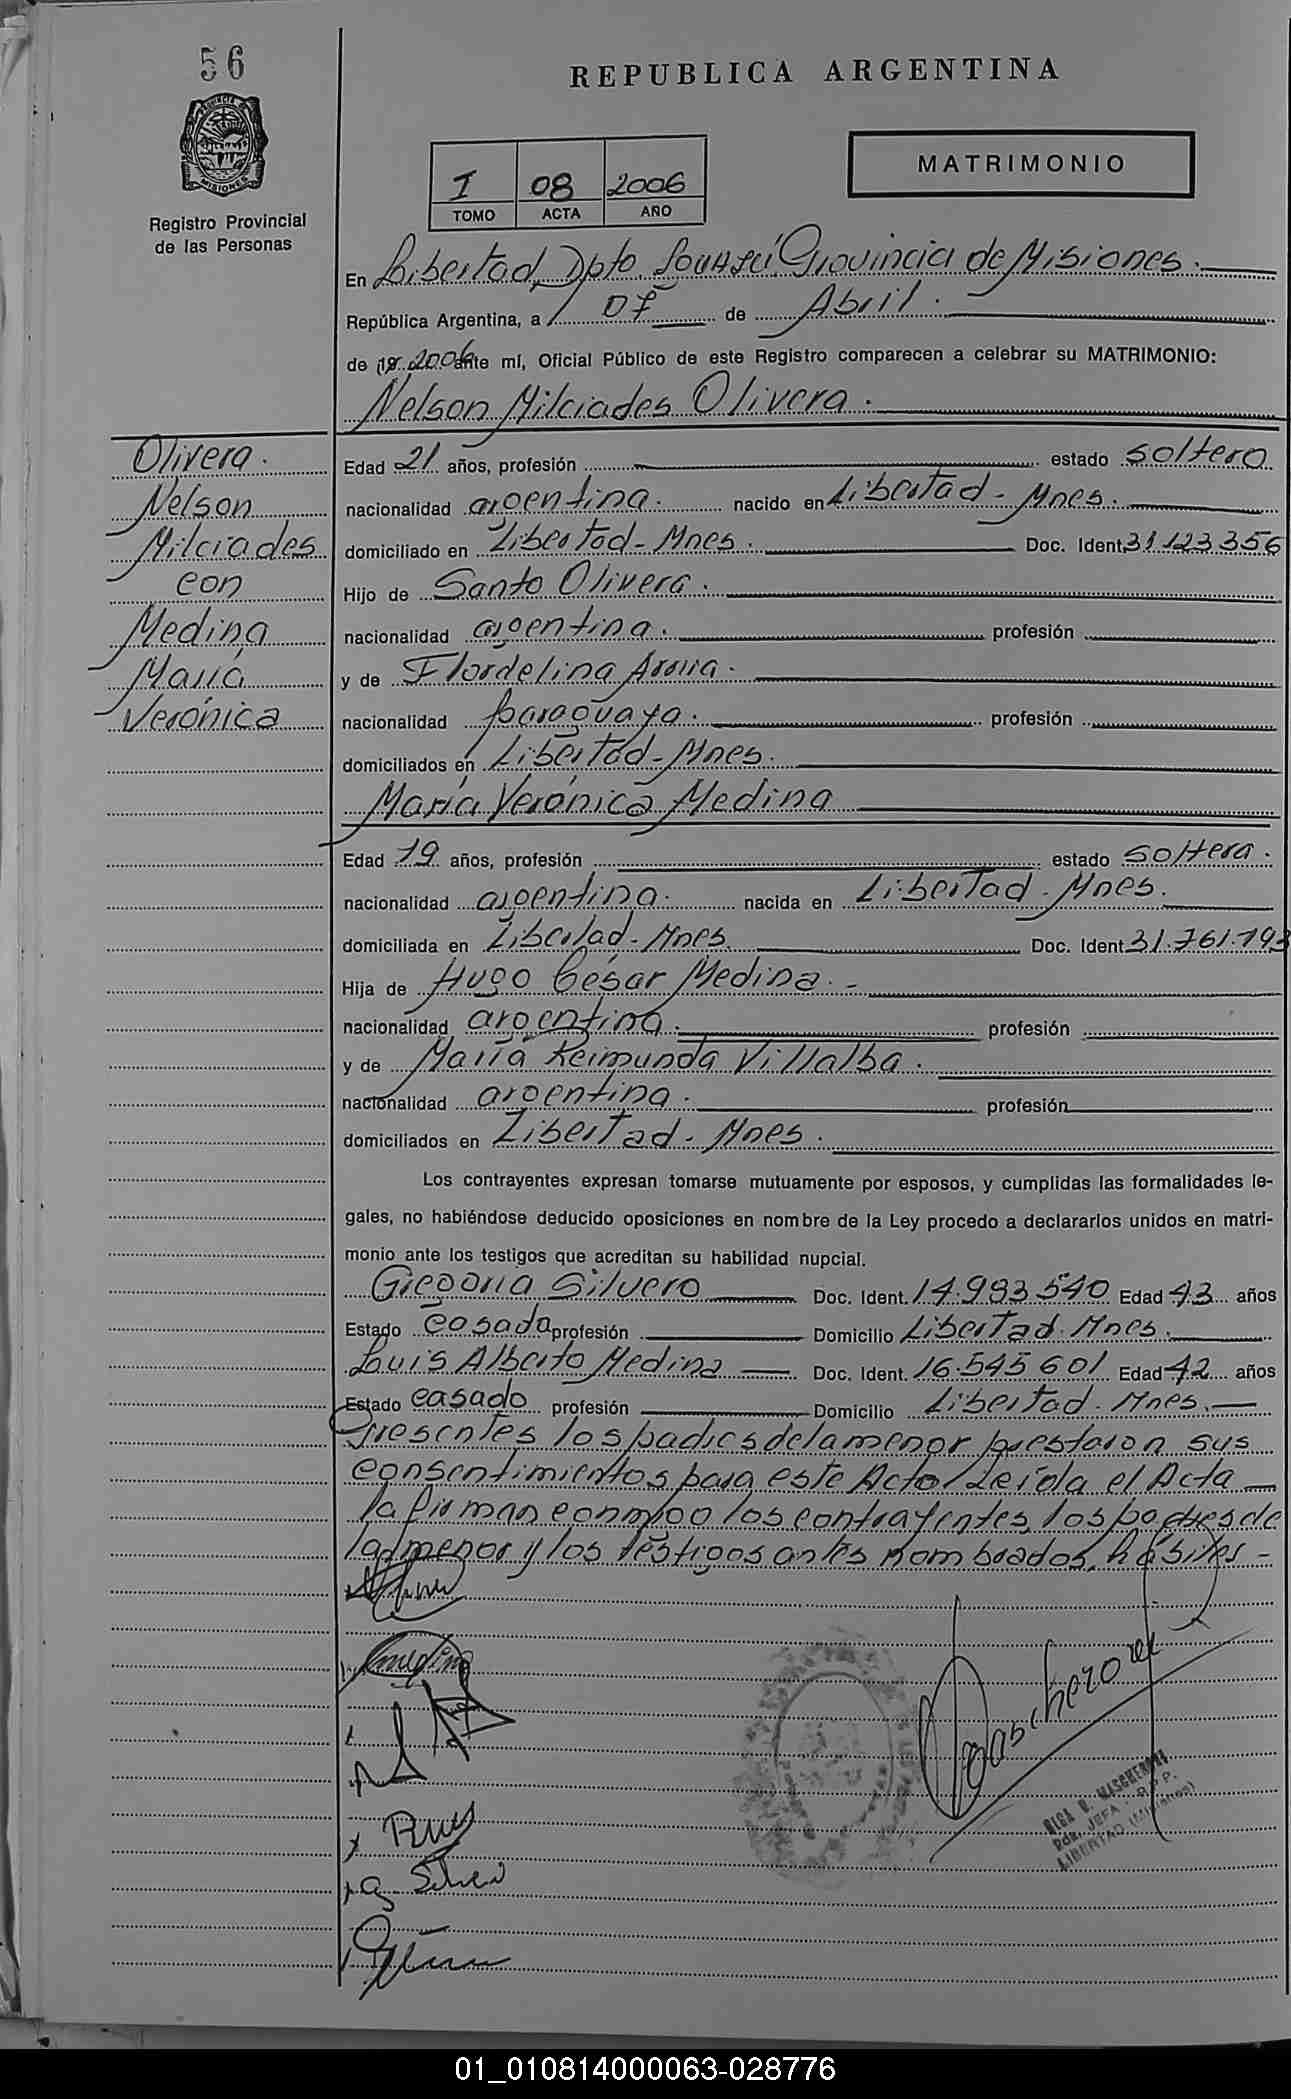 56
REPUBLICA ARGENTINA
PROVINCIA DE
MISIONES
Registro Provincial
de las Personas
I 08 2006
TOMO ACTA AÑO
MATRIMONIO
En Libertad, Dpto. Iguazú Provincia de Misiones.
República Argentina, a 07 de Abril.
de 19 2006 ante mí, Oficial Público de este Registro comparecen a celebrar su MATRIMONIO:
Nelson Milciades Olivera.
Olivera.
Nelson
Milciades
con
Medina
María
Verónica
Edad 21 años, profesión estado soltero
nacionalidad argentina. nacido en Libertad - Mnes.
domiciliado en Libertad - Mnes. Doc. Ident. 31.123.356
Hijo de Santo Olivera.
nacionalidad argentina. profesión
y de Flordelina
nacionalidad paraguaya. profesión
domiciliados en Libertad - Mnes.
María Verónica Medina
Edad 19 años, profesión estado soltera.
nacionalidad argentina. nacida en Libertad - Mnes.
domiciliada en Libertad - Mnes. Doc. Ident. 31.761.193
Hija de Hugo César Medina. -
nacionalidad argentina. profesión
y de María Reimunda Villalba.
nacionalidad argentina. profesión
domiciliados en Libertad - Mnes.
Los contrayentes expresan tomarse mutuamente por esposos, y cumplidas las formalidades le-
gales, no habiéndose deducido oposiciones en nombre de la Ley procedo a declararlos unidos en matri-
monio ante los testigos que acreditan su habilidad nupcial.
Gregoria Silvero Doc. Ident. 14.993.540 Edad 43 años
Estado casada profesión Domicilio Libertad. Mnes.
Luis Alberto Medina Doc. Ident. 16.545.601 Edad 42 años
Estado casado profesión Domicilio Libertad. Mnes.
Presentes los padres de la menor prestaron sus
consentimientos para este Acto. Leída el Acta
la firman conmigo los contrayentes, los padres de
la menor y los testigos antes nombrados, hábiles -
OLGA MASCHERONI
JEFA R.P.P.
LIBERTAD (Misiones)
01_010814000063-028776